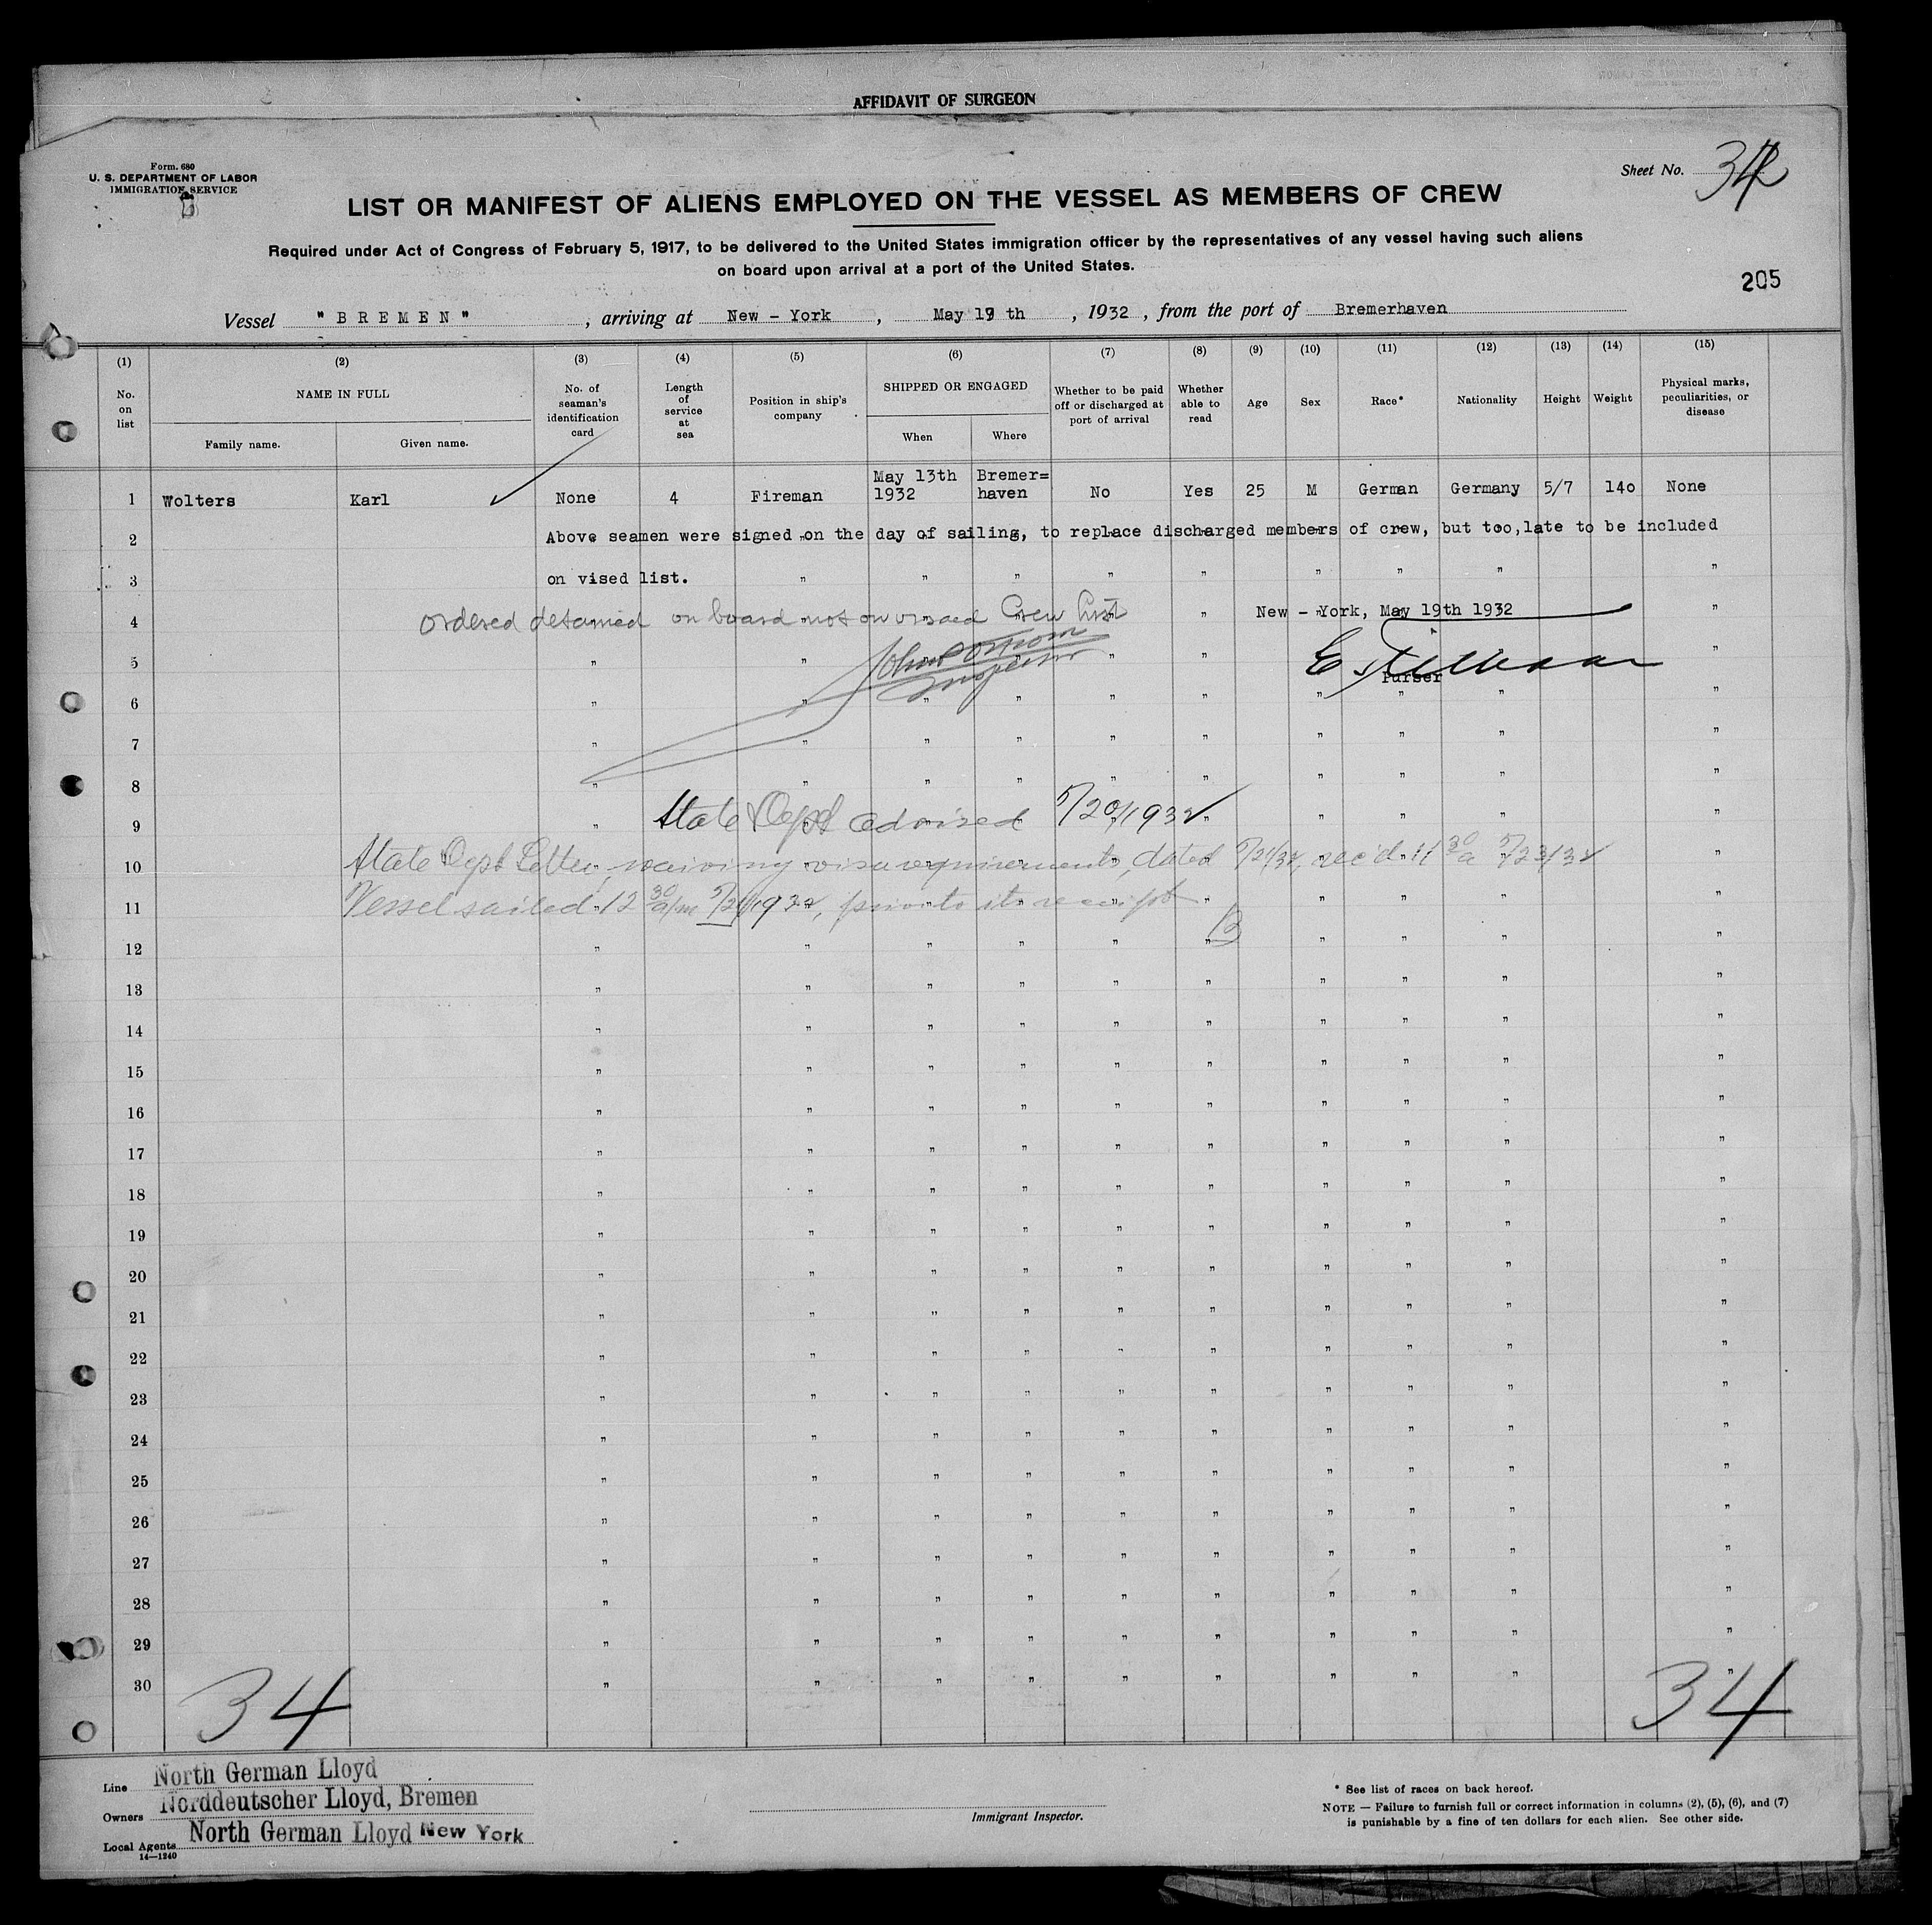 AFFIDAVIT OF SURGEON
Form. 680
U. S. DEPARTMENT OF LABOR
IMMIGRATION SERVICE
Sheet No. 34
LIST OR MANIFEST OF ALIENS EMPLOYED ON THE VESSEL AS MEMBERS OF CREW
Required under Act of Congress of February 5, 1917, to be delivered to the United States immigration officer by the representatives of any vessel having such aliens
on board upon arrival at a port of the United States.
205
Vessel "BREMEN", arriving at New - York, May 19 th, 1932, from the port of Bremerhaven
(1) (2) (3) (4) (5) (6) (7) (8) (9) (10) (11) (12) (13) (14) (15)
No. on list
NAME IN FULL
Family name. Given name.
No. of seaman's identification card
Length of service at sea
Position in ship's company
SHIPPED OR ENGAGED
When Where
Whether to be paid off or discharged at port of arrival
Whether able to read
Age
Sex
Race*
Nationality
Height
Weight
Physical marks, peculiarities, or disease
1 Wolters Karl None 4 Fireman May 13th 1932 Bremer= haven No Yes 25 M German Germany 5/7 140 None
2 Above seamen were signed on the day of sailing, to replace discharged members of crew, but too,late to be included
3 on vised list. " " " " " " " " "
4 Ordered detained on board not on visaed Crew list " New - York, May 19th 1932 "
5 " " " " " "
Inspector
Purser
6 " " " " " " " " " "
7 " " " " " " " " " "
8 " " " " " " " " " "
9 " State Dept advised 5/20/1932 " " " " "
10 State Dept Letter, waiving visa requirements, dated 5/21/32, rec'd 11 30 a 5/23/32
11 Vessel sailed 12 30 a/m 5/21/1932, prior to its receipt " " " " "
B
12 " " " " " " " " " "
13 " " " " " " " " " "
14 " " " " " " " " " "
15 " " " " " " " " " "
16 " " " " " " " " " "
17 " " " " " " " " " "
18 " " " " " " " " " "
19 " " " " " " " " " "
20 " " " " " " " " " "
21 " " " " " " " " " "
22 " " " " " " " " " "
23 " " " " " " " " " "
24 " " " " " " " " " "
25 " " " " " " " " " "
26 " " " " " " " " " "
27 " " " " " " " " " "
28 " " " " " " " " " "
29 " " " " " " " " " "
30 " " " " " " " " " "
34 34
Line North German Lloyd
Owners Norddeutscher Lloyd, Bremen
Local Agents North German Lloyd New York
14—1240
Immigrant Inspector.
* See list of races on back hereof.
NOTE — Failure to furnish full or correct information in columns (2), (5), (6), and (7)
is punishable by a fine of ten dollars for each alien. See other side.